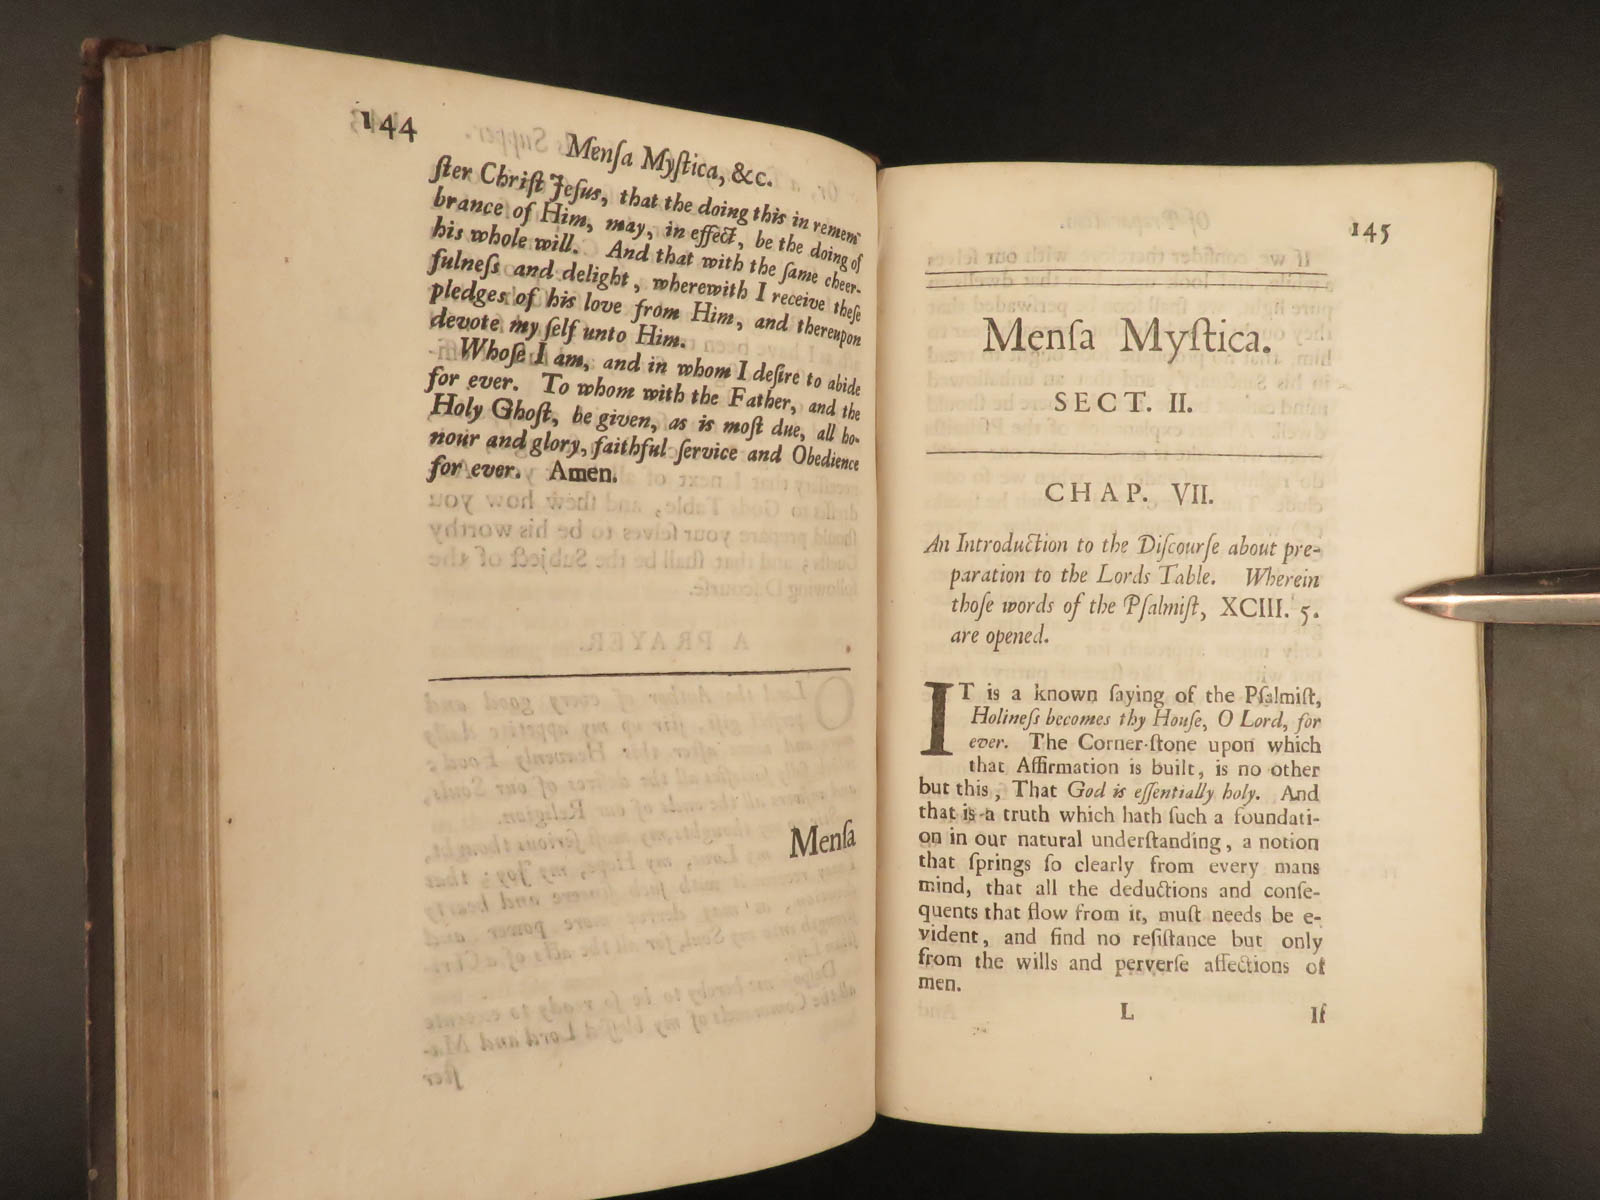 144
Menſa Myſtica, &c.
ſter Chriſt Jeſus, that the doing this in remem-
brance of Him, may, in effect, be the doing of
his whole will. And that with the ſame cheer-
fulneſs and delight, wherewith I receive theſe
pledges of his love from Him, and thereupon
devote my ſelf unto Him.
Whoſe I am, and in whom I deſire to abide
for ever. To whom with the Father, and the
Holy Ghoſt, be given, as is moſt due, all ho-
nour and glory, faithful ſervice and Obedience
for ever. Amen.
Menſa
145
Menſa Myſtica.
SECT. II.
CHAP. VII.
An Introduction to the Diſcourſe about pre-
paration to the Lords Table. Wherein
thoſe words of the Pſalmiſt, XCIII. 5.
are opened.
IT is a known ſaying of the Pſalmiſt,
Holineſs becomes thy Houſe, O Lord, for
ever. The Corner-ſtone upon which
that Affirmation is built, is no other
but this, That God is eſſentially holy. And
that is a truth which hath ſuch a foundati-
on in our natural underſtanding, a notion
that ſprings ſo clearly from every mans
mind, that all the deductions and conſe-
quents that flow from it, muſt needs be e-
vident, and find no reſiſtance but only
from the wills and perverſe affections of
men.
L
If